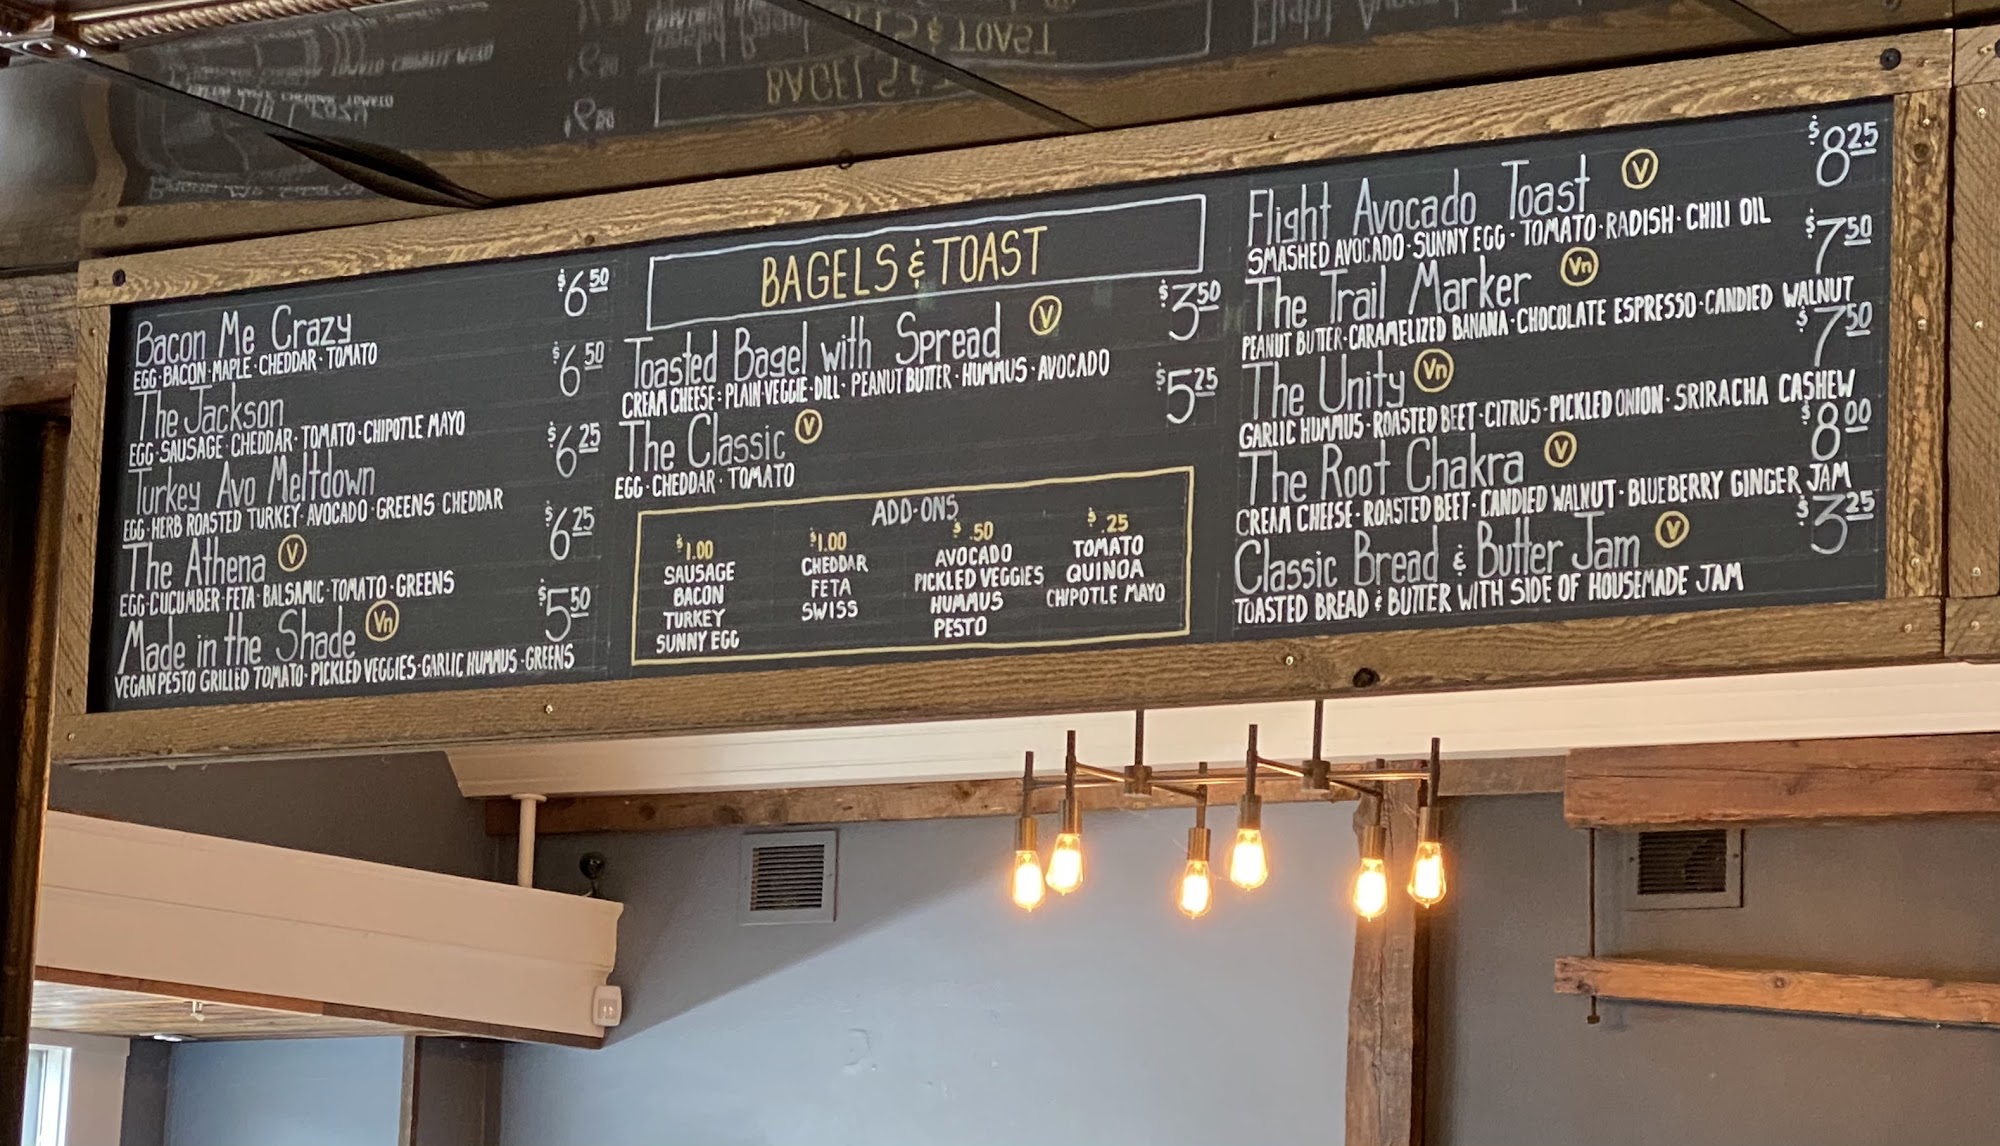 Bacon Me Crazy $6.50
EGG·BACON·MAPLE·CHEDDAR·TOMATO
The Jackson $6.50
EGG·SAUSAGE·CHEDDAR·TOMATO·CHIPOTLE MAYO
Turkey Avo Meltdown $6.25
EGG·HERB ROASTED TURKEY·AVOCADO·GREENS·CHEDDAR
The Athena V $6.25
EGG·CUCUMBER·FETA·BALSAMIC·TOMATO·GREENS
Made in the Shade Vn $5.50
VEGAN PESTO GRILLED TOMATO·PICKLED VEGGIES·GARLIC HUMMUS·GREENS
BAGELS & TOAST
Toasted Bagel with Spread V $3.50
CREAM CHEESE: PLAIN·VEGGIE·DILL·PEANUT BUTTER·HUMMUS·AVOCADO
The Classic V $5.25
EGG·CHEDDAR·TOMATO
ADD-ONS
$1.00
SAUSAGE
BACON
TURKEY
SUNNY EGG
$1.00
CHEDDAR
FETA
SWISS
$.50
AVOCADO
PICKLED VEGGIES
HUMMUS
PESTO
$.25
TOMATO
QUINOA
CHIPOTLE MAYO
Flight Avocado Toast V $8.25
SMASHED AVOCADO·SUNNY EGG·TOMATO·RADISH·CHILI OIL
The Trail Marker Vn $7.50
PEANUT BUTTER·CARAMELIZED BANANA·CHOCOLATE ESPRESSO·CANDIED WALNUT
The Unity Vn $7.50
GARLIC HUMMUS·ROASTED BEET·CITRUS·PICKLED ONION·SRIRACHA CASHEW
The Root Chakra V $8.00
CREAM CHEESE·ROASTED BEET·CANDIED WALNUT·BLUEBERRY GINGER JAM
Classic Bread & Butter Jam V $3.25
TOASTED BREAD & BUTTER WITH SIDE OF HOUSEMADE JAM